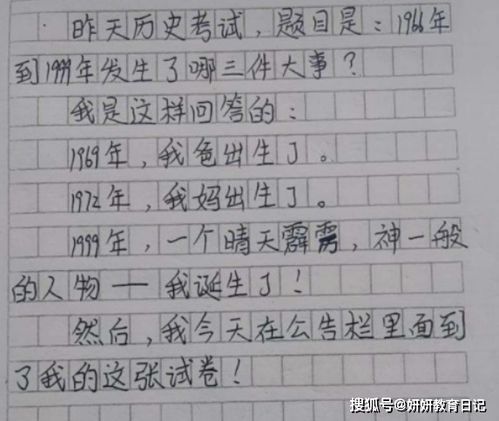 昨天历史考试，题目是：1966年
到1999年发生了哪三件大事？
我是这样回答的：
1969年，我爸出生了。
1972年，我妈出生了。
1999年，一个晴天霹雳，神一般
的人物——我诞生了！
然后，我今天在公告栏里面到
了我的这张试卷！
搜狐号@妍妍教育日记